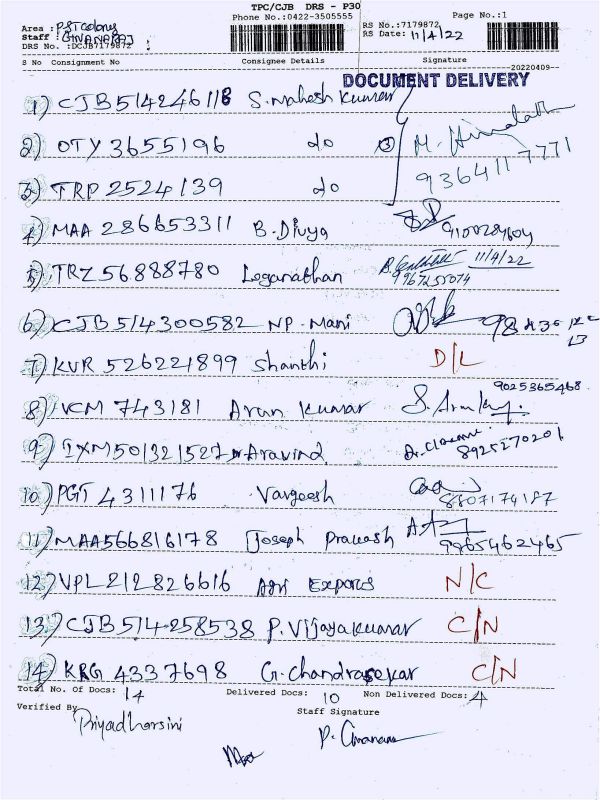 TPC/CJB DRS - P30
Phone No.:0422-3505555 Page No.:1
Area : P&T Colony
RS No.:7179872
Staff : GNANARAJ
RS Date: 11/4/22
DRS No. :DCJB7179872
20220409-
S No Consignment No Consignee Details Signature
DOCUMENT DELIVERY
1) CJB514246118 S. Mahesh Kumar
2) OTY 3655196 do ③ M.
3) TRP 2524139 do 9364117771
4) MAA 286653311 B. Divya 9100284604
5) TRZ 56888780 Loganathan B. 11/4/22
9967255074
6) CJB 514300582 NP. Mani
7) KVR 526221899 Shanthi D/L
9025365468
8) VCM 743181 Arun Kumar
9) IXM501321527 Aravind 8925270201
10) PGT 4311176 Vargeesh 8807174187
11) MAA566816178 Joseph Prakash 9965462465
12) VPL 212826616 Agri Exports N/C
13) CJB 514258538 P. Vijayakumar C/N
14) KRG 4337698 G. Chandrasekar C/N
Total No. Of Docs: 14 Delivered Docs: 10 Non Delivered Docs: 4
Verified By Priyadharsini Staff Signature